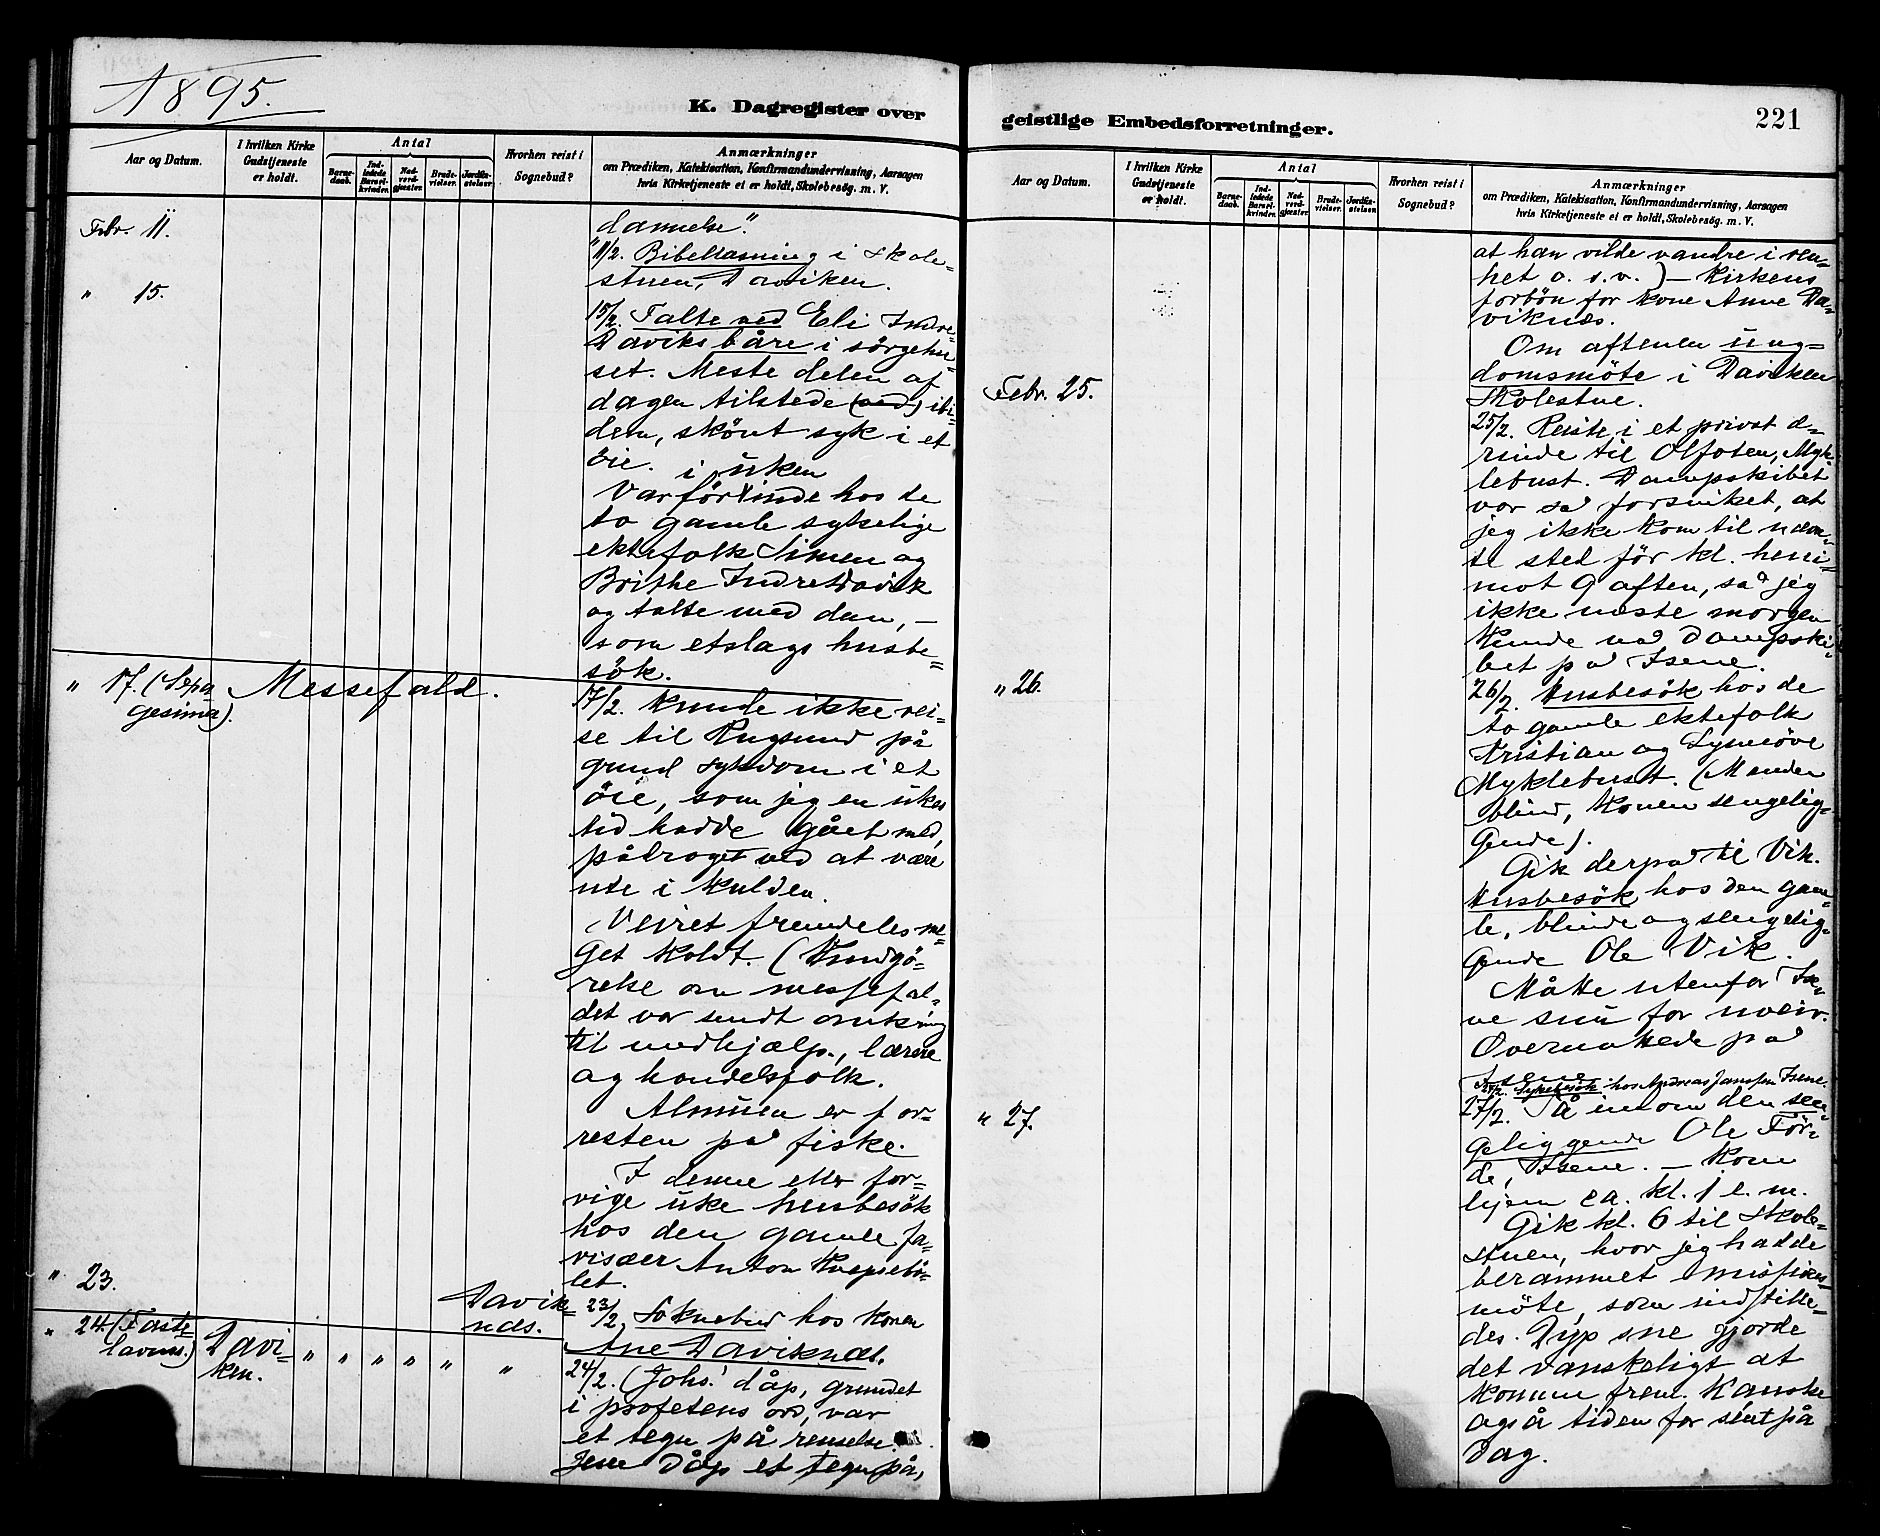 1895.
K. Dagregister over
Aar og Datum.
I hvilken Kirke
Gudstjeneste
er holdt.
Antal
Barne-
daab.
Ind-
ledede
Barsel-
kvinder.
Nad-
verd-
gjæster.
Brude-
vielser.
Jordfæ-
stelser.
Hvorhen reist i
Sognebud?
Anmærkninger
om Prædiken, Katekisation, Konfirmandundervisning, Aarsagen
hvis Kirketjeneste ei er holdt, Skolebesög. m. V.
Febr. 11.
dannelse".
11/2. Bibellæsning i skole-
stuen, Daviken.
" 15.
15/2. Talte ved Eli Indre-
Daviks båre i sörgehu-
set. Meste delen af
dagen tilstede (ved) ibi-
dem, skönt syk i et
öie.
i uken
Var för inde hos de
to gamle sykelige
ektefolk Simen og
Brithe Indre Davik
og talte med dem, –
som etslags husbe-
sök.
" 17. (Septua
gesima).
Messefald.
17/2. Kunde ikke rei-
se til Rugsund på
grund sykdom i et
öie, som jeg en ukes
tid hadde gået med,
pådraget ved at være
ute i kulden.
Veiret fremdeles me-
get koldt. (Kundgö-
relse om messefal-
det var sendt omkring
til medhjælp., lærere
og handelsfolk.
Almuen er for-
resten på fiske.
I denne eller for-
rige uke husbesök
hos den gamle fa-
risæer Anton
let.
" 23.
Davik-
næs.
23/2. Soknebud hos konen
Ane Daviknæs.
" 24. (Faste-
lavns.)
Davi-
ken.
" " " " " "
24/2. (Johs.' dåp, grundet
i profetens ord, var
et tegn på renselse.
Jesu dåp et tegn på,
geistlige Embedsforretninger.
221
Aar og Datum.
I hvilken Kirke
Gudstjeneste
er holdt.
Antal
Barne-
daab.
Ind-
ledede
Barsel-
kvinder.
Nad-
verd-
gjæster.
Brude-
vielser.
Jordfæ-
stelser.
Hvorhen reist i
Sognebud?
Anmærkninger
om Prædiken, Katekisation, Konfirmandundervisning, Aarsagen
hvis Kirketjeneste ei er holdt, Skolebesög. m. V.
at han vilde vandre i ren-
het o. s. v.) – Kirkens
forbön for kone Anne Da-
viknæs.
Om aftenen ung-
domsmöte i Daviken
skolestue.
Febr. 25.
25/2. Reiste i et privat æ-
rinde til Olfoten, Myk-
lebust. Dampskibet
var så forsinket, at
jeg ikke kom til nævn-
te sted för kl. heni-
mot 9 aften, så jeg
ikke næste morgen
kunde nå dampski-
bet på Isene.
" 26.
26/2. Husbesök hos de
to gamle ektefolk
Kristian og Synnöve
Myklebust. (Manden
blind, konen sengelig-
gende).
Gik derpå til Vik.
Husbesök hos den gam-
le, blinde og sengelig-
gende Ole Vik.
Måtte utenfor Ise-
ne snu for uveir.
Overnattede på
Isene.
Sykebesök hos Andreas Janssen Isene.
" 27.
27/2. Så indom den sen-
geliggende Ole För-
de, Isene. – Kom
hjem ca. kl. 1 e. m.
Gik kl. 6 til skole-
stuen, hvor jeg hadde
berammet missions-
möte, som indstille-
des. Dyp sne gjorde
det vanskeligt at
komme frem. Kanske
også tiden for sent på
dag.